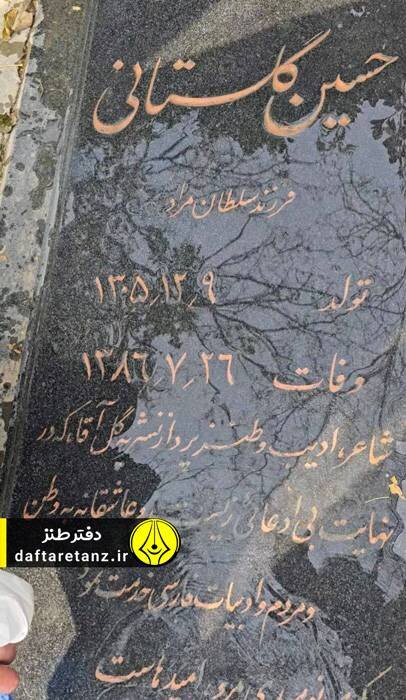 حسین گلستانی
فرزند سلطان مراد
تولد ۹٫۱۲٫۱۳۰۵
وفات ۲۶٫۷٫۱۳۸۶
شاعر، ادیب و طنز پرداز نشریه گل آقا، که در
نهایت بی ادعائی زیست و عاشقانه به وطن
و مردم و ادبیات فارسی خدمت کرد
امیدهاست
دفتر طنز
daftaretanz.ir